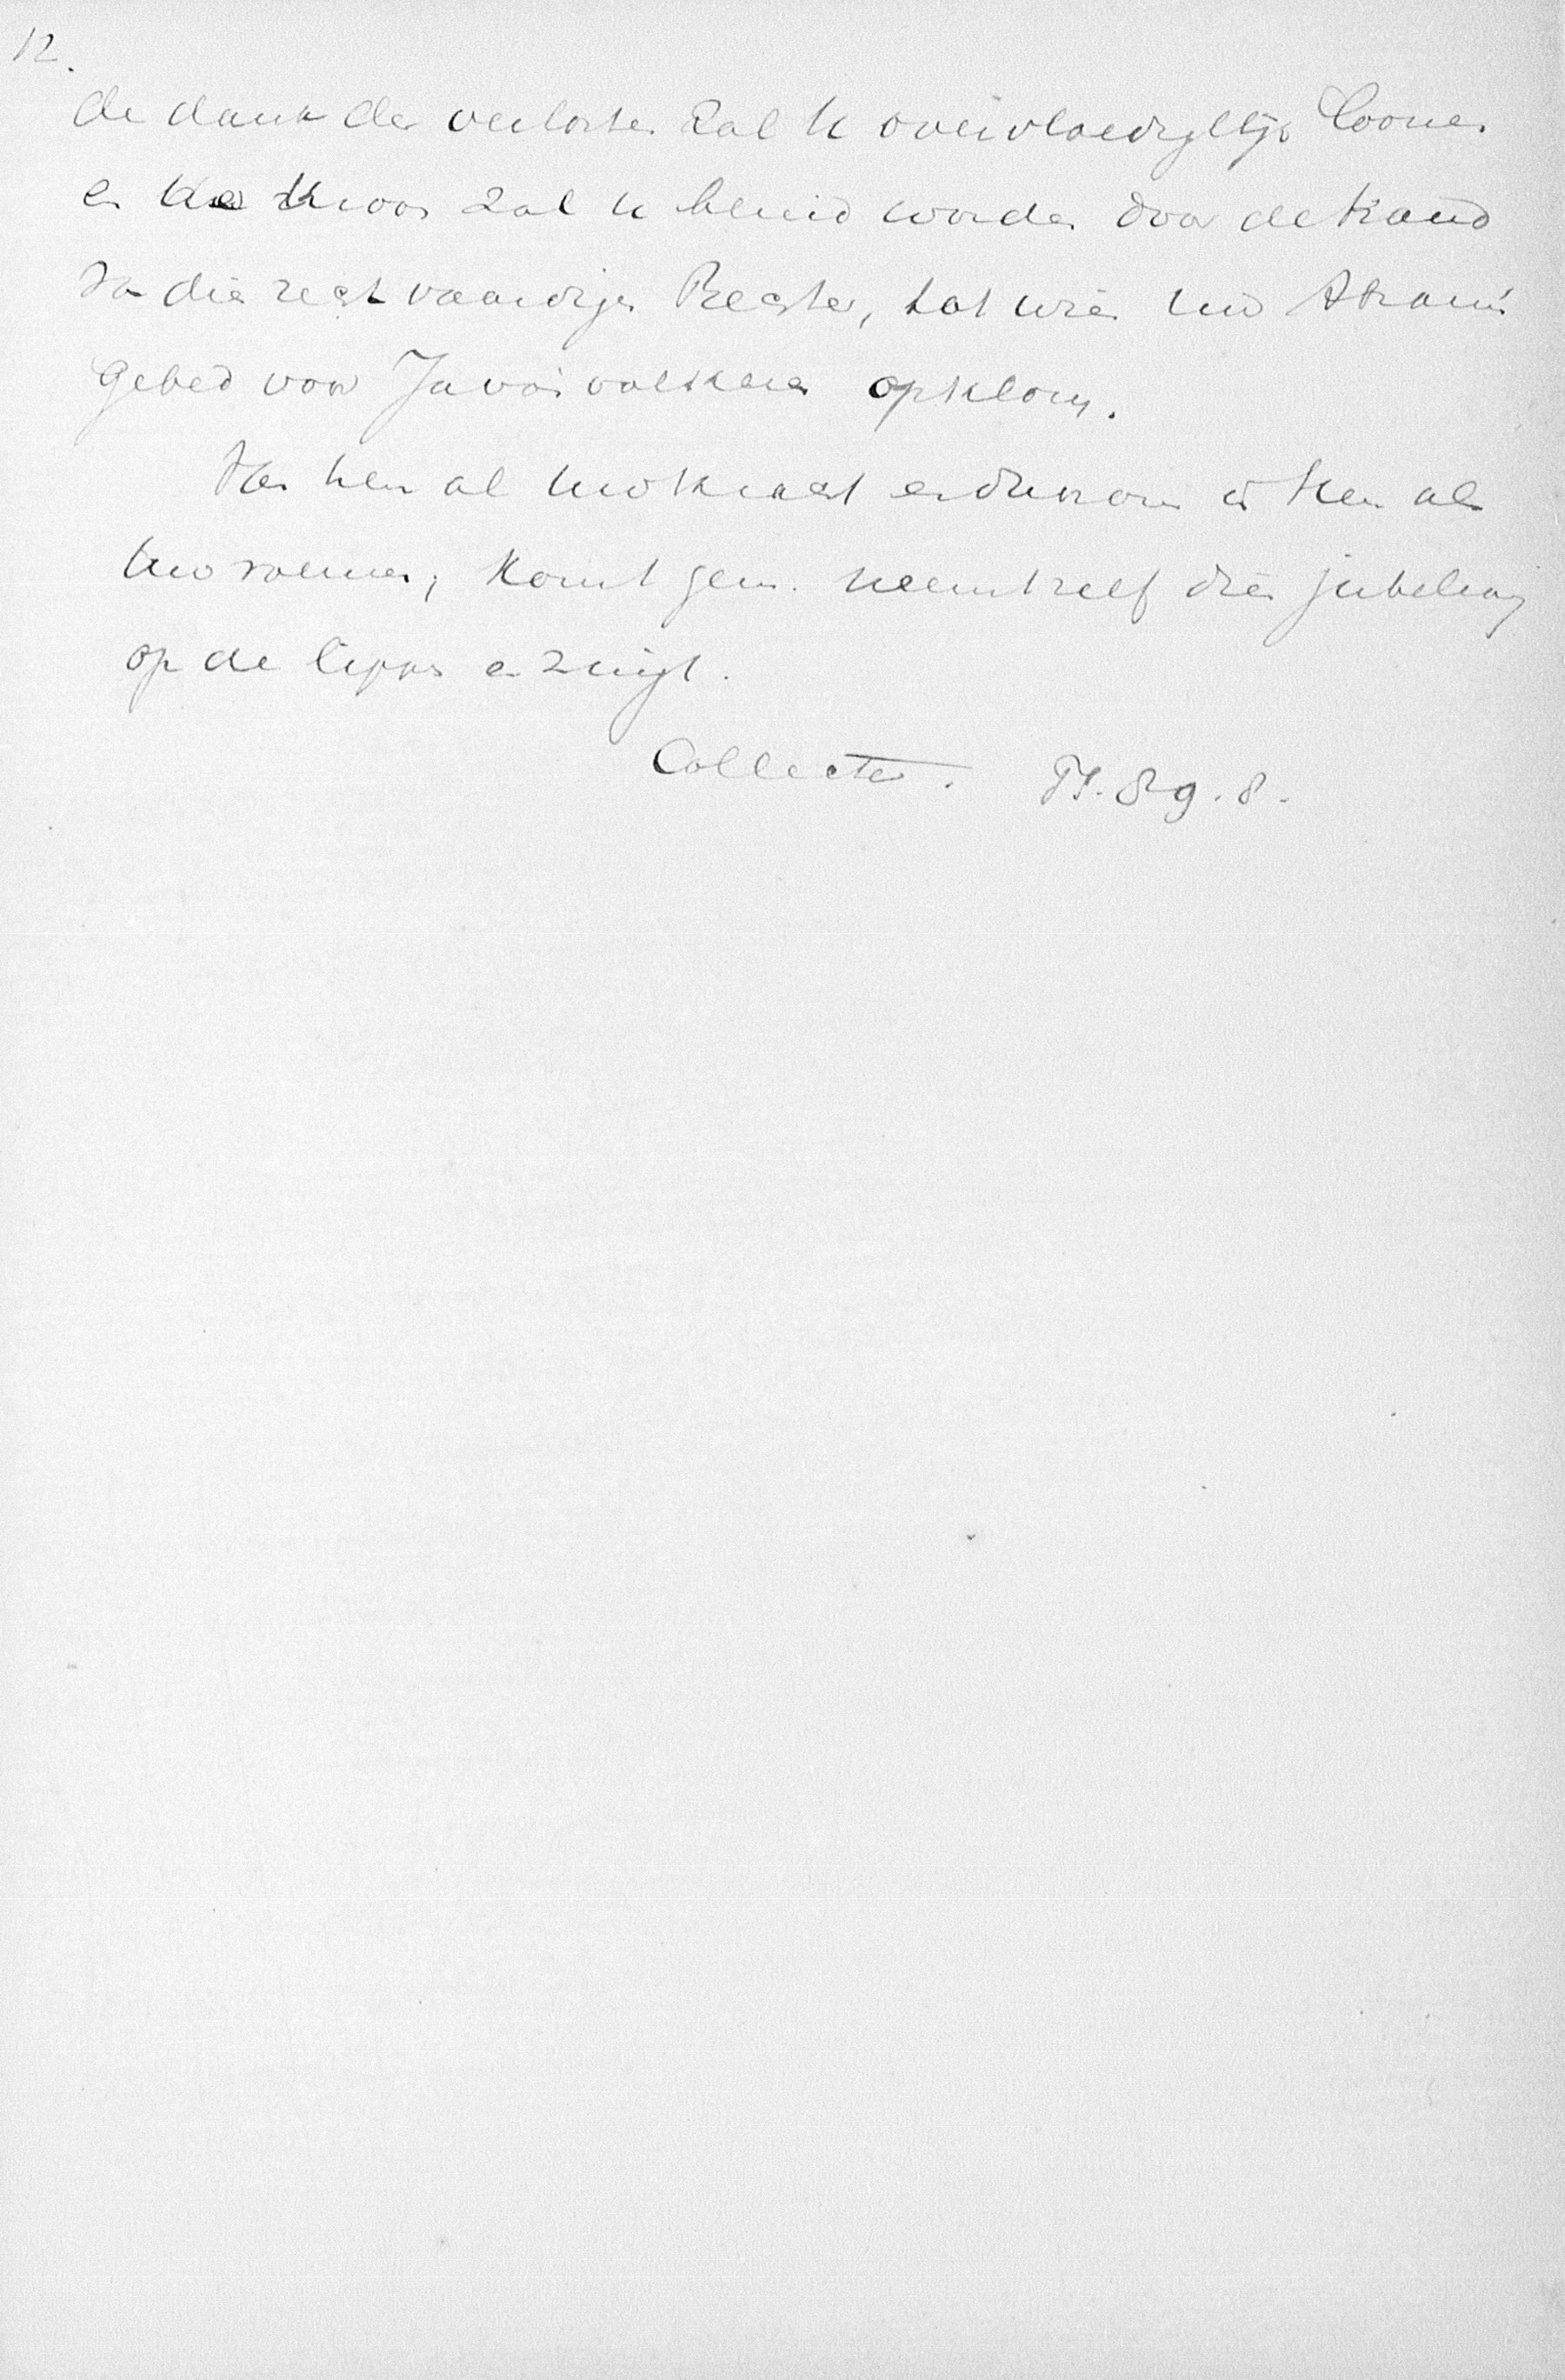 12.
de dank der verlosten zal U overvloediglijk loonen
en de Kroon zal U bereid worden door de hand
van die rechtvaardigen Rechter, tot wien uw Abram's
gebed voor Java's volkeren opklom.
Van hem al uw kracht en daarom in Hem al
uw roemen; komt gem. neemt zelf dien jubelzang
op de lippen en zingt.
Collecte. Ps. 89. 8.